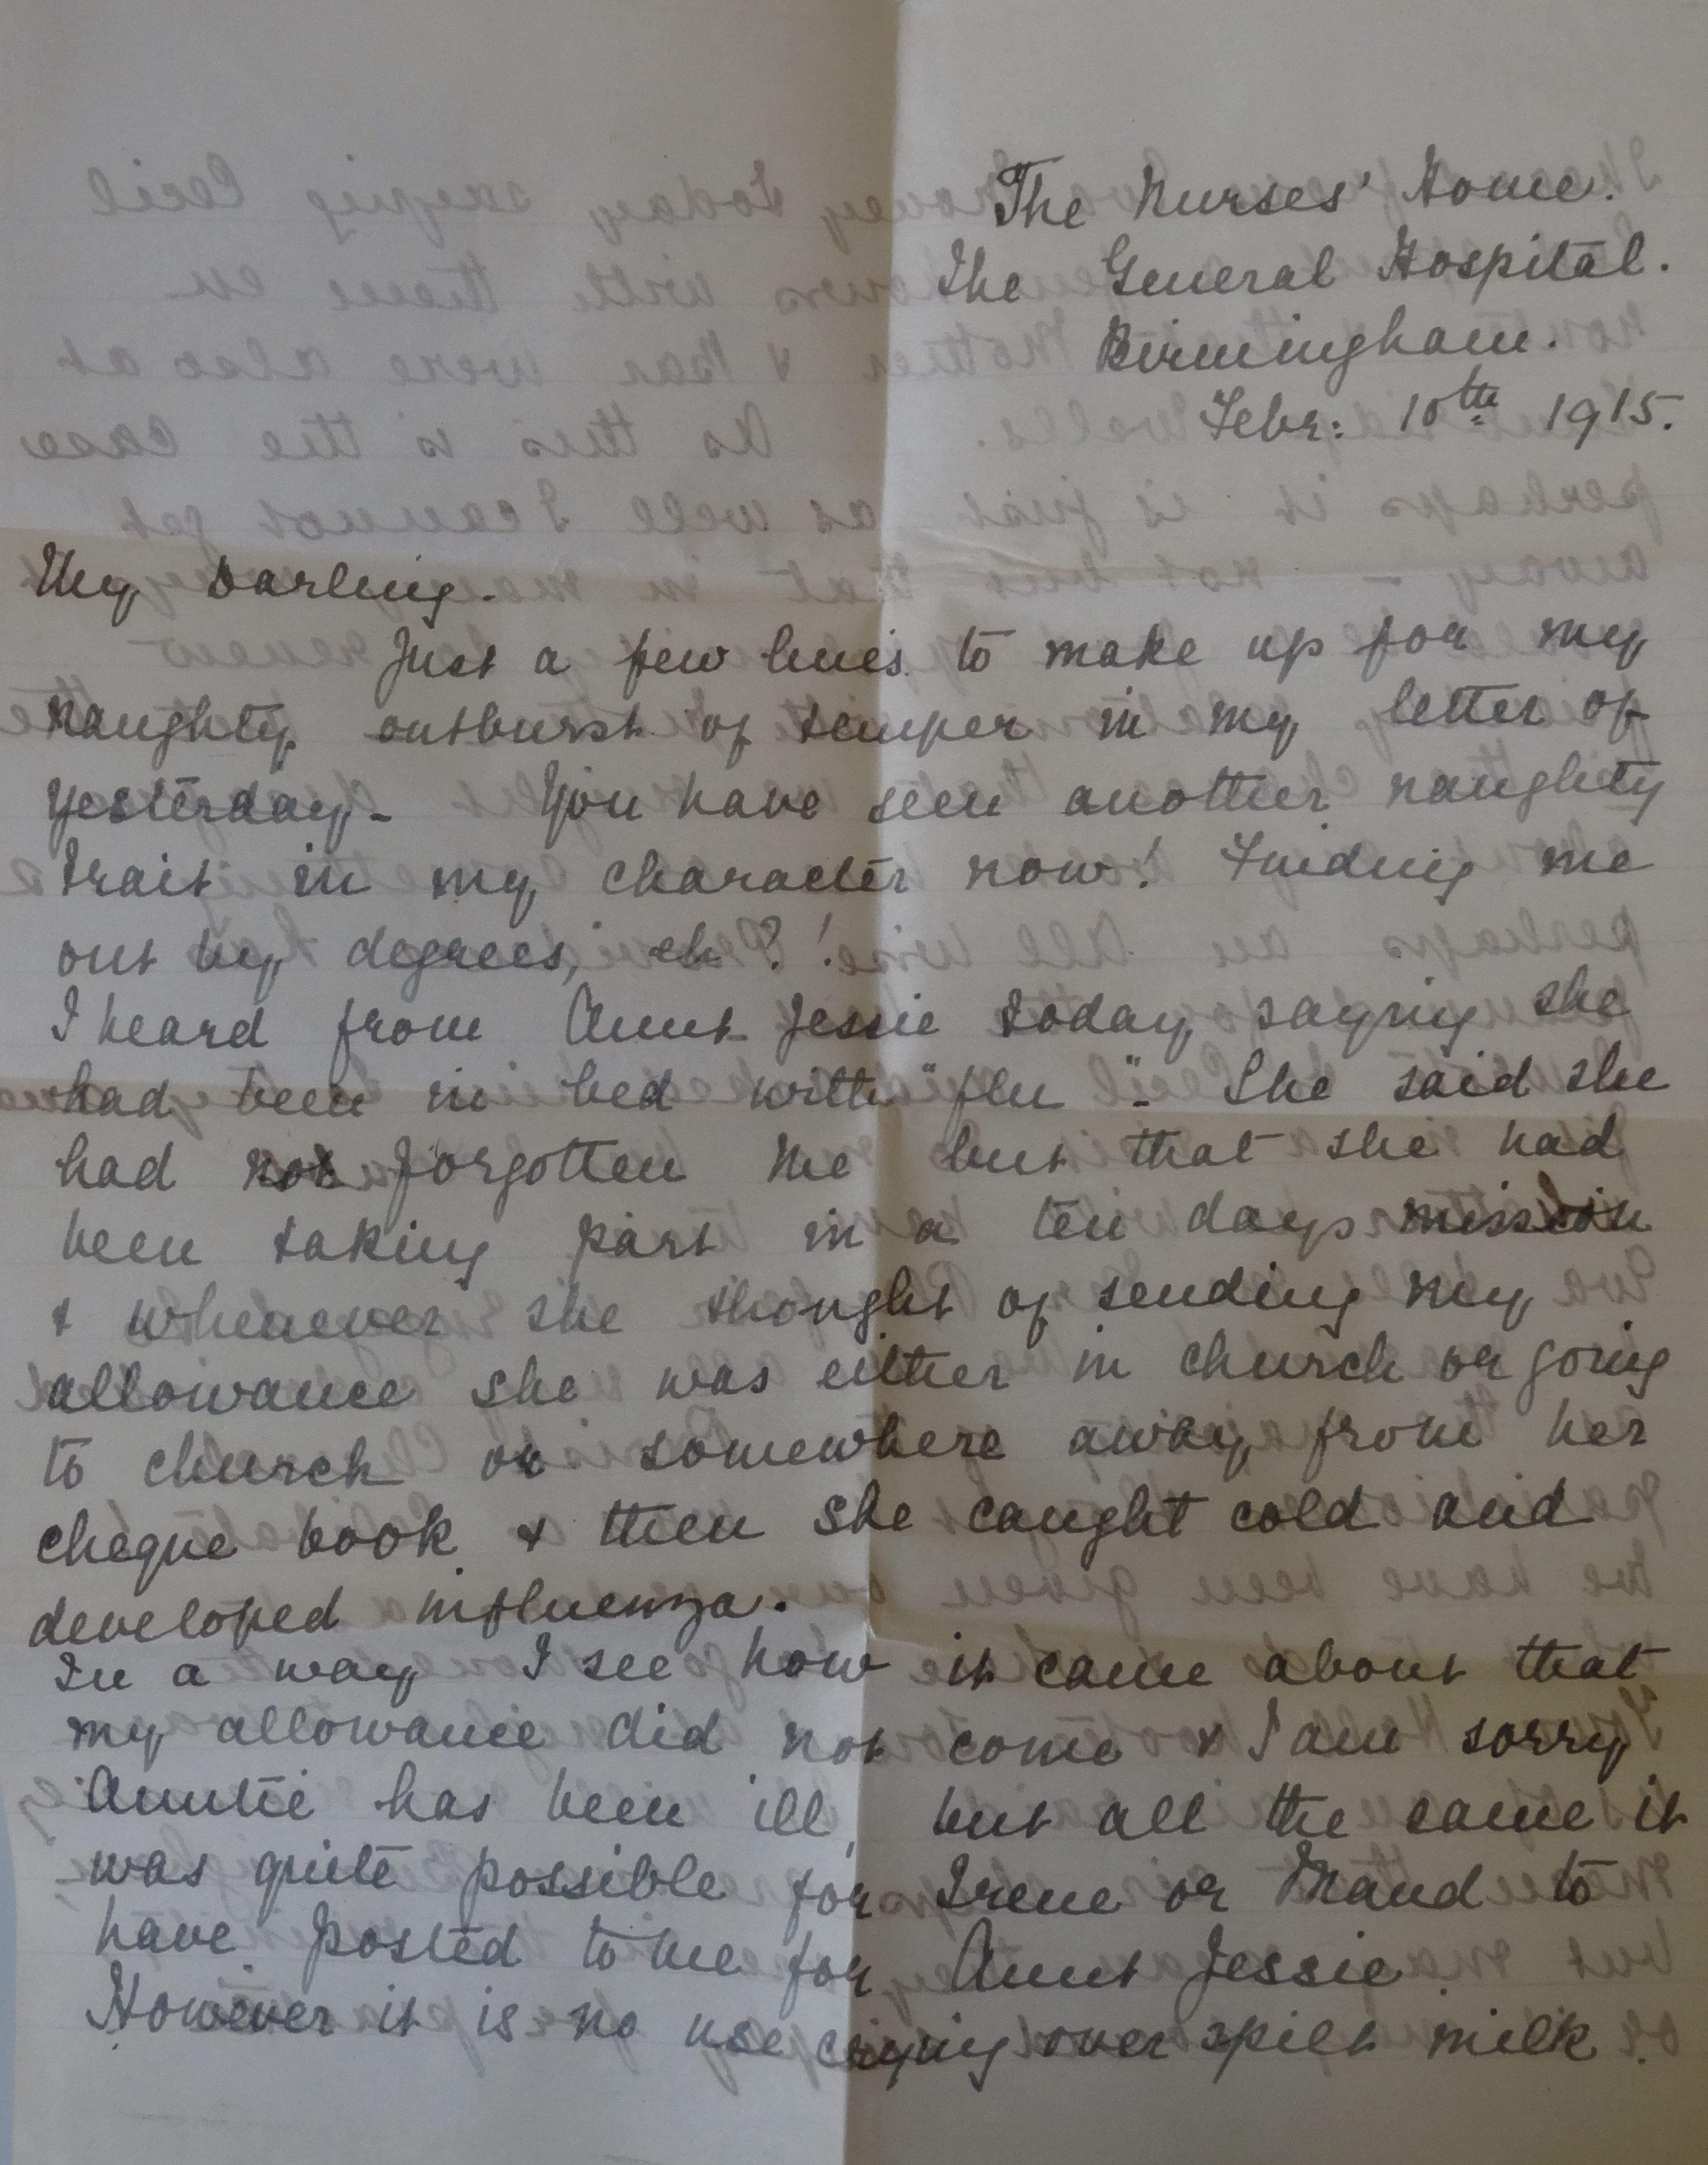 The Nurses' Home.
The General Hospital.
Birmingham.
Febr: 10th 1915.
My Darling.
Just a few lines to make up for my
naughty outburst of temper in my letter of
yesterday - You have seen another naughty
trait in my character now! Finding me
out by degrees, eh?!
I heard from Aunt Jessie today saying she
had been in bed with "flu". She said she
had not forgotten me but that she had
been taking part in a ten days mission
& whenever she thought of sending my
allowance she was either in church or going
to church or somewhere away from her
cheque book & then she caught cold and
developed influenza.
In a way I see how it came about that
my allowance did not come & I am sorry
Auntie has been ill, but all the same it
was quite possible for Irene or Maud to
have posted to me for Aunt Jessie.
However it is no use crying over spilt milk.